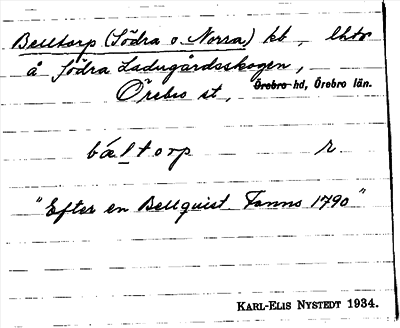 Belltorp (Södra o. Norra) kt, lhtr
å Södra Ladugårdsskogen,
Örebro st, Örebro hd, Örebro län.
bæltorp r.
"Efter en Bellquist. Fanns 1790"
KARL-ELIS NYSTEDT 1934.